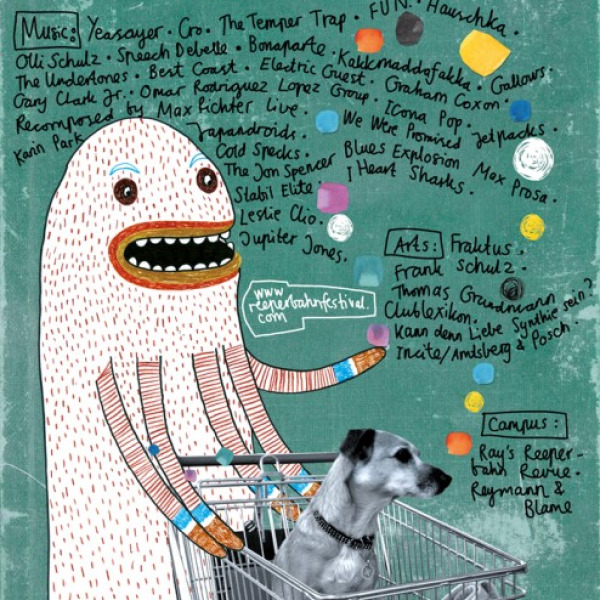 Music: Yeasayer · Cro · The Temper Trap · FUN. · Hauschka ·
Olli Schulz · Speech Debelle · Bonaparte · Kakkmaddafakka · Gallows ·
The Undertones · Best Coast · Electric Guest · Graham Coxon ·
Gary Clark Jr. · Omar Rodriguez Lopez Group · Icona Pop ·
Recomposed by Max Richter Live · We Were Promised Jetpacks ·
Karin Park
Japandroids ·
Cold Specks ·
The Jon Spencer Blues Explosion Max Prosa ·
Slabil Elite · I Heart Sharks ·
Leslie Clio ·
Jupiter Jones.
www
reeperbahnfestival.
com
Arts: Fraktus ·
Frank Schulz ·
Thomas Grundmann
Clublexikon ·
Kann denn Liebe Synthie sein?
Incite/Amdsberg & Posch ·
Campus:
Ray's Reeper-
bahn Revue ·
Reymann &
Blame